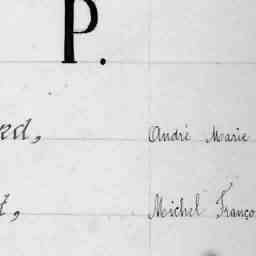 P.
rd, André Marie
t, Michel Franço